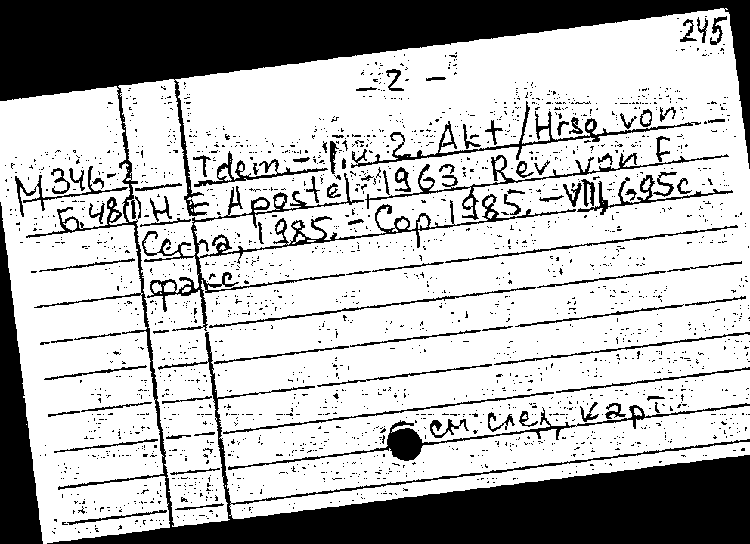 245
- 2 -
М 346-2 Idem. - 1. u. 2. Akt / Hrsg. von
Б. 480 H. E. Apostel, 1963; Rev. von F.
Cerha, 1985. - Cop. 1985. - VIII, 695 с.:
факс.
см. след. карт.